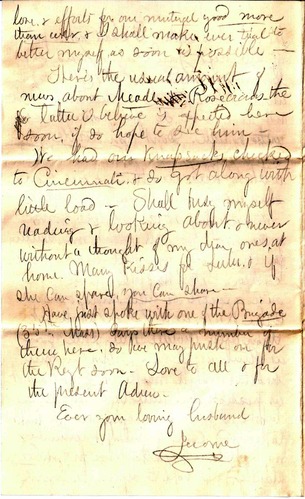 love, & efforts for our mutual good more
than ever & I shall make every trial to
better myself as soon as possible —
There's the usual amount of
news about Meade, Rosecrans, the
latter I believe is expected here
soon, if so hope to see him —
We had our Knapsacks checked
to Cincinnati & so got along with
little load — Shall busy myself
reading & looking about & never
without a thought of my dear ones, at
home. Many Kisses for Lulu. & if
she can spare, you can share —
Have just spoke with one of the Brigade
(35th Mass) says there a number of
them here, so we may push on for
the Regt soon. Love to all & for
the present Adieu.
Ever your loving husband
Jerome